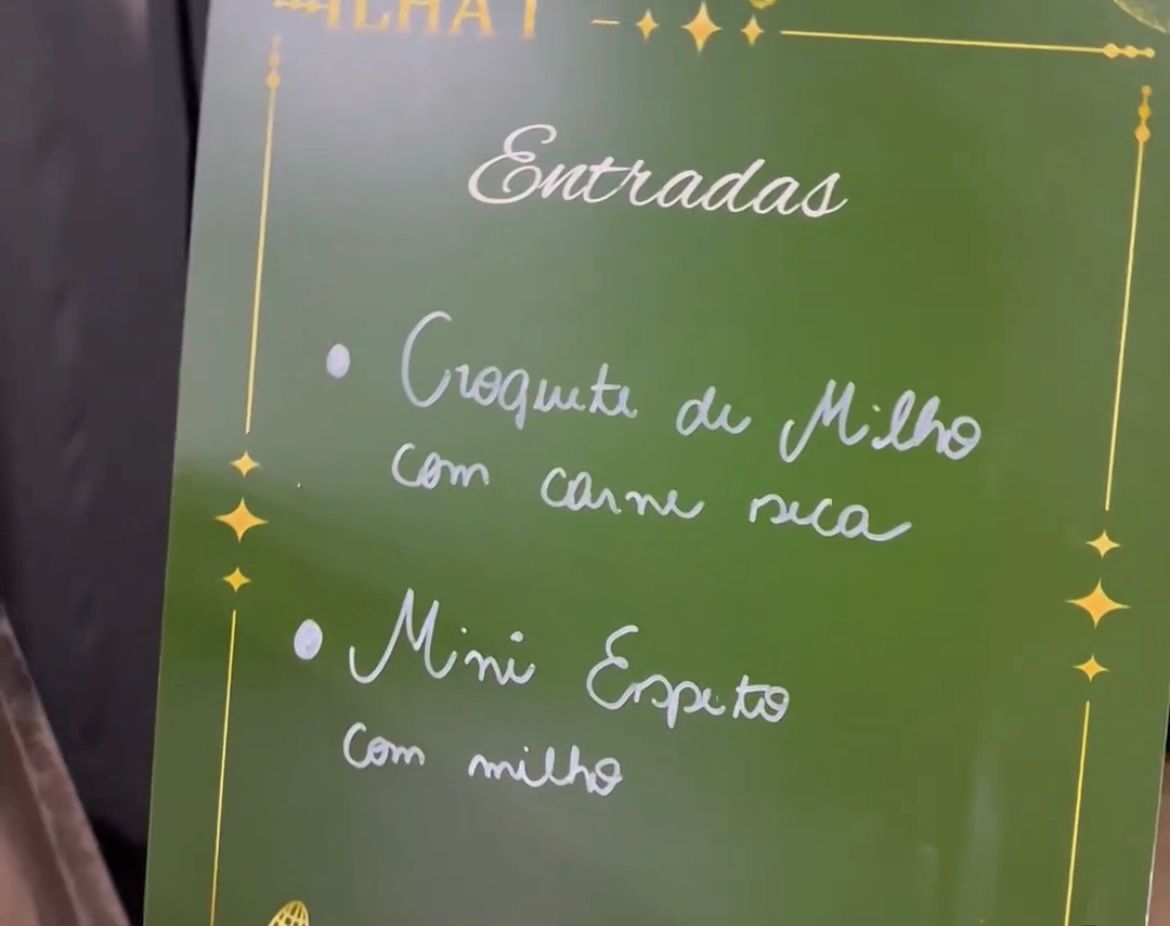 Entradas
• Croquete de Milho
com carne seca
• Mini Espeto
com milho